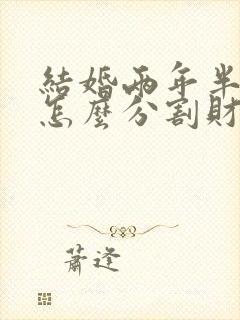 結婚兩年半
怎麼分割財
蕭逢